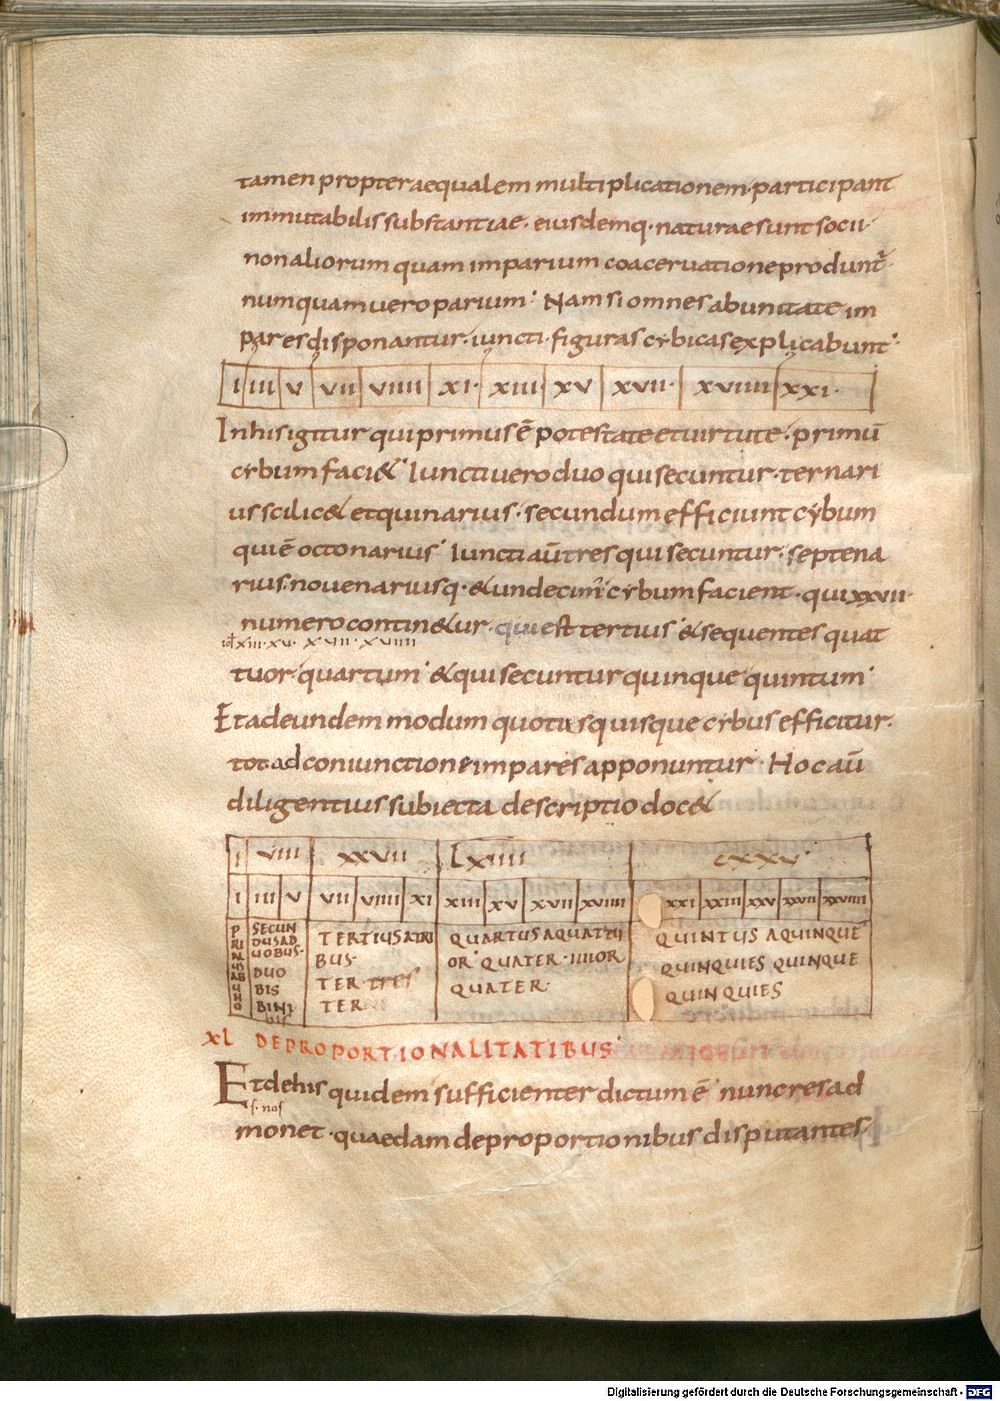 tamen propter aequalem multiplicationem· participant
immutabilis substantiae· eiusdemq· naturae sunt socii·
non aliorum quam imparium coaceruatione produnt᷑·
numquam uero parium· Nam si omnes ab unitate im
pares disponantur· iuncti· figuras cybicas explicabunt·
I III V VII VIIII XI· XIII XV XVII· XVIIII XXI·
In his igitur qui primus ē potestate et uirtute· primū
cybum faci&· Iuncti uero duo qui secuntur· ternari
us scilic& et quinarius· secundum efficiunt cybum
qui ē octonarius· Iuncti aūt tres qui secuntur· septena
rius· nouenariusq· & undecim᷑ cybum facient· qui xxvii·
numero contin&ur· qui est tertius· & sequentes quat
id xiii· xv· xvii· xviiii
tuor· quartum· & qui secuntur quinque quintum·
Et ad eundem modum quotus quisque cybus efficitur·
tot ad coniunctionē impares apponuntur· Hoc aūt
diligentius subiecta descriptio doc&
I VIII XXVII LXIIII CXXV·
I III V VII VIIII XI XIII XV XVII XVIIII XXI XXIII XXV XXVII XXVIIII
PRIMUS AB UNO
SECUN
DUS A D
UOBUS·
DUO
BIS
BINI
bis
TERTIUS A TRI
BUS·
TER tres
TER
QUARTUS A QUATTU
OR· QUATER· IIIIOR
QUATER·
QUINTUS A QUINQUE
QUINQUIES QUINQUE
QUINQUIES
XL DE PROPORTIONALITATIBUS·
Et de his quidem sufficienter dictum ē· nunc res ad
s· nos
monet· quaedam de proportionibus disputantes·
Digitalisierung gefördert durch die Deutsche Forschungsgemeinschaft - DFG